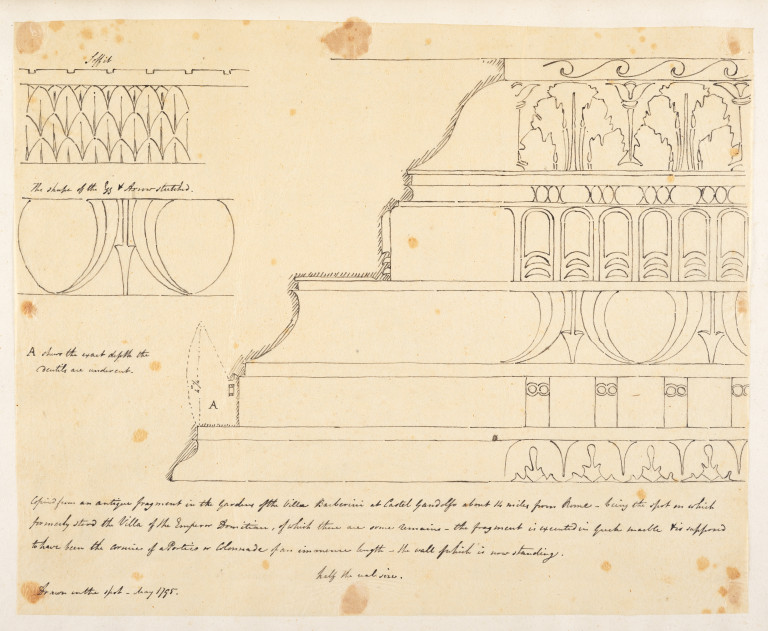 Soffit
The shape of the Egg & Arrow sketched.
A shows the exact depth the
dentils are undercut.
A
Copied from an antique fragment in the Gardens of the Villa Barberini at Castel Gandolfo about 14 miles from Rome – being the spot on which
formerly stood the Villa of the Emperor Domitian, of which there are some remains – the fragment is executed in Greek marble & is supposed
to have been the cornice of a Portico or Colonnade of an immense length – the wall of which is now standing.
half the real size.
Drawn on the spot – May 1795.